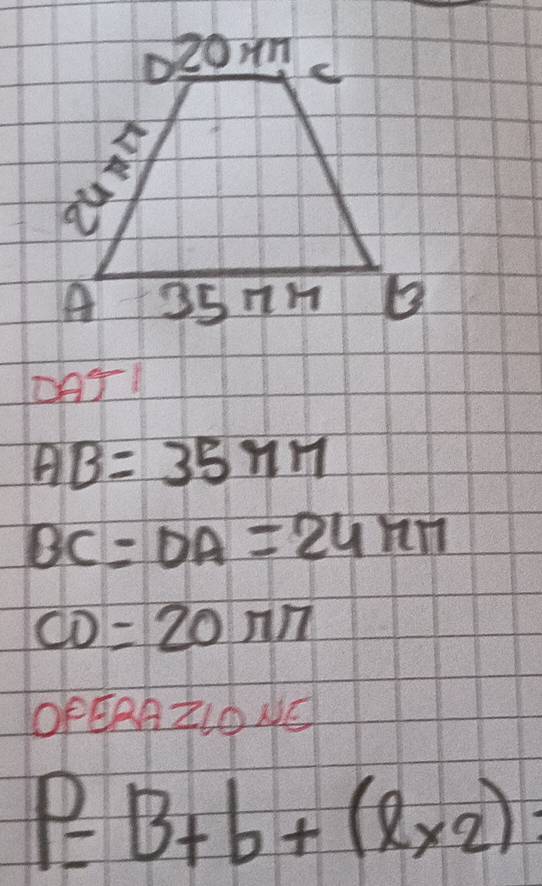 D 20 mm C
24 mm
A 35 mm B
DATI
AB = 35 mm
BC = DA = 24 mm
CD = 20 mm
OPERAZIONE
P = B + b + (l x 2) =